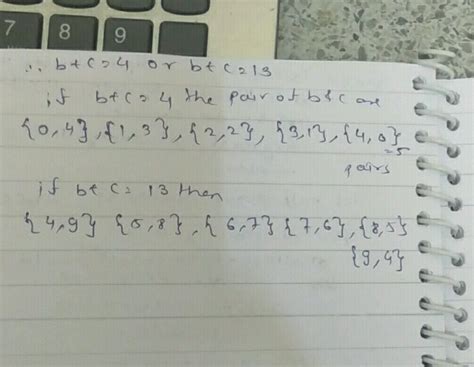 7 8 9
∴ b+c=4 or b+c=13
if b+c=4 the pair of b&c are
{0,4},{1,3},{2,2},{3,1},{4,0}
=5
pairs
if b+c=13 then
{4,9} {5,8},{6,7}{7,6},{8,5}
{9,4}